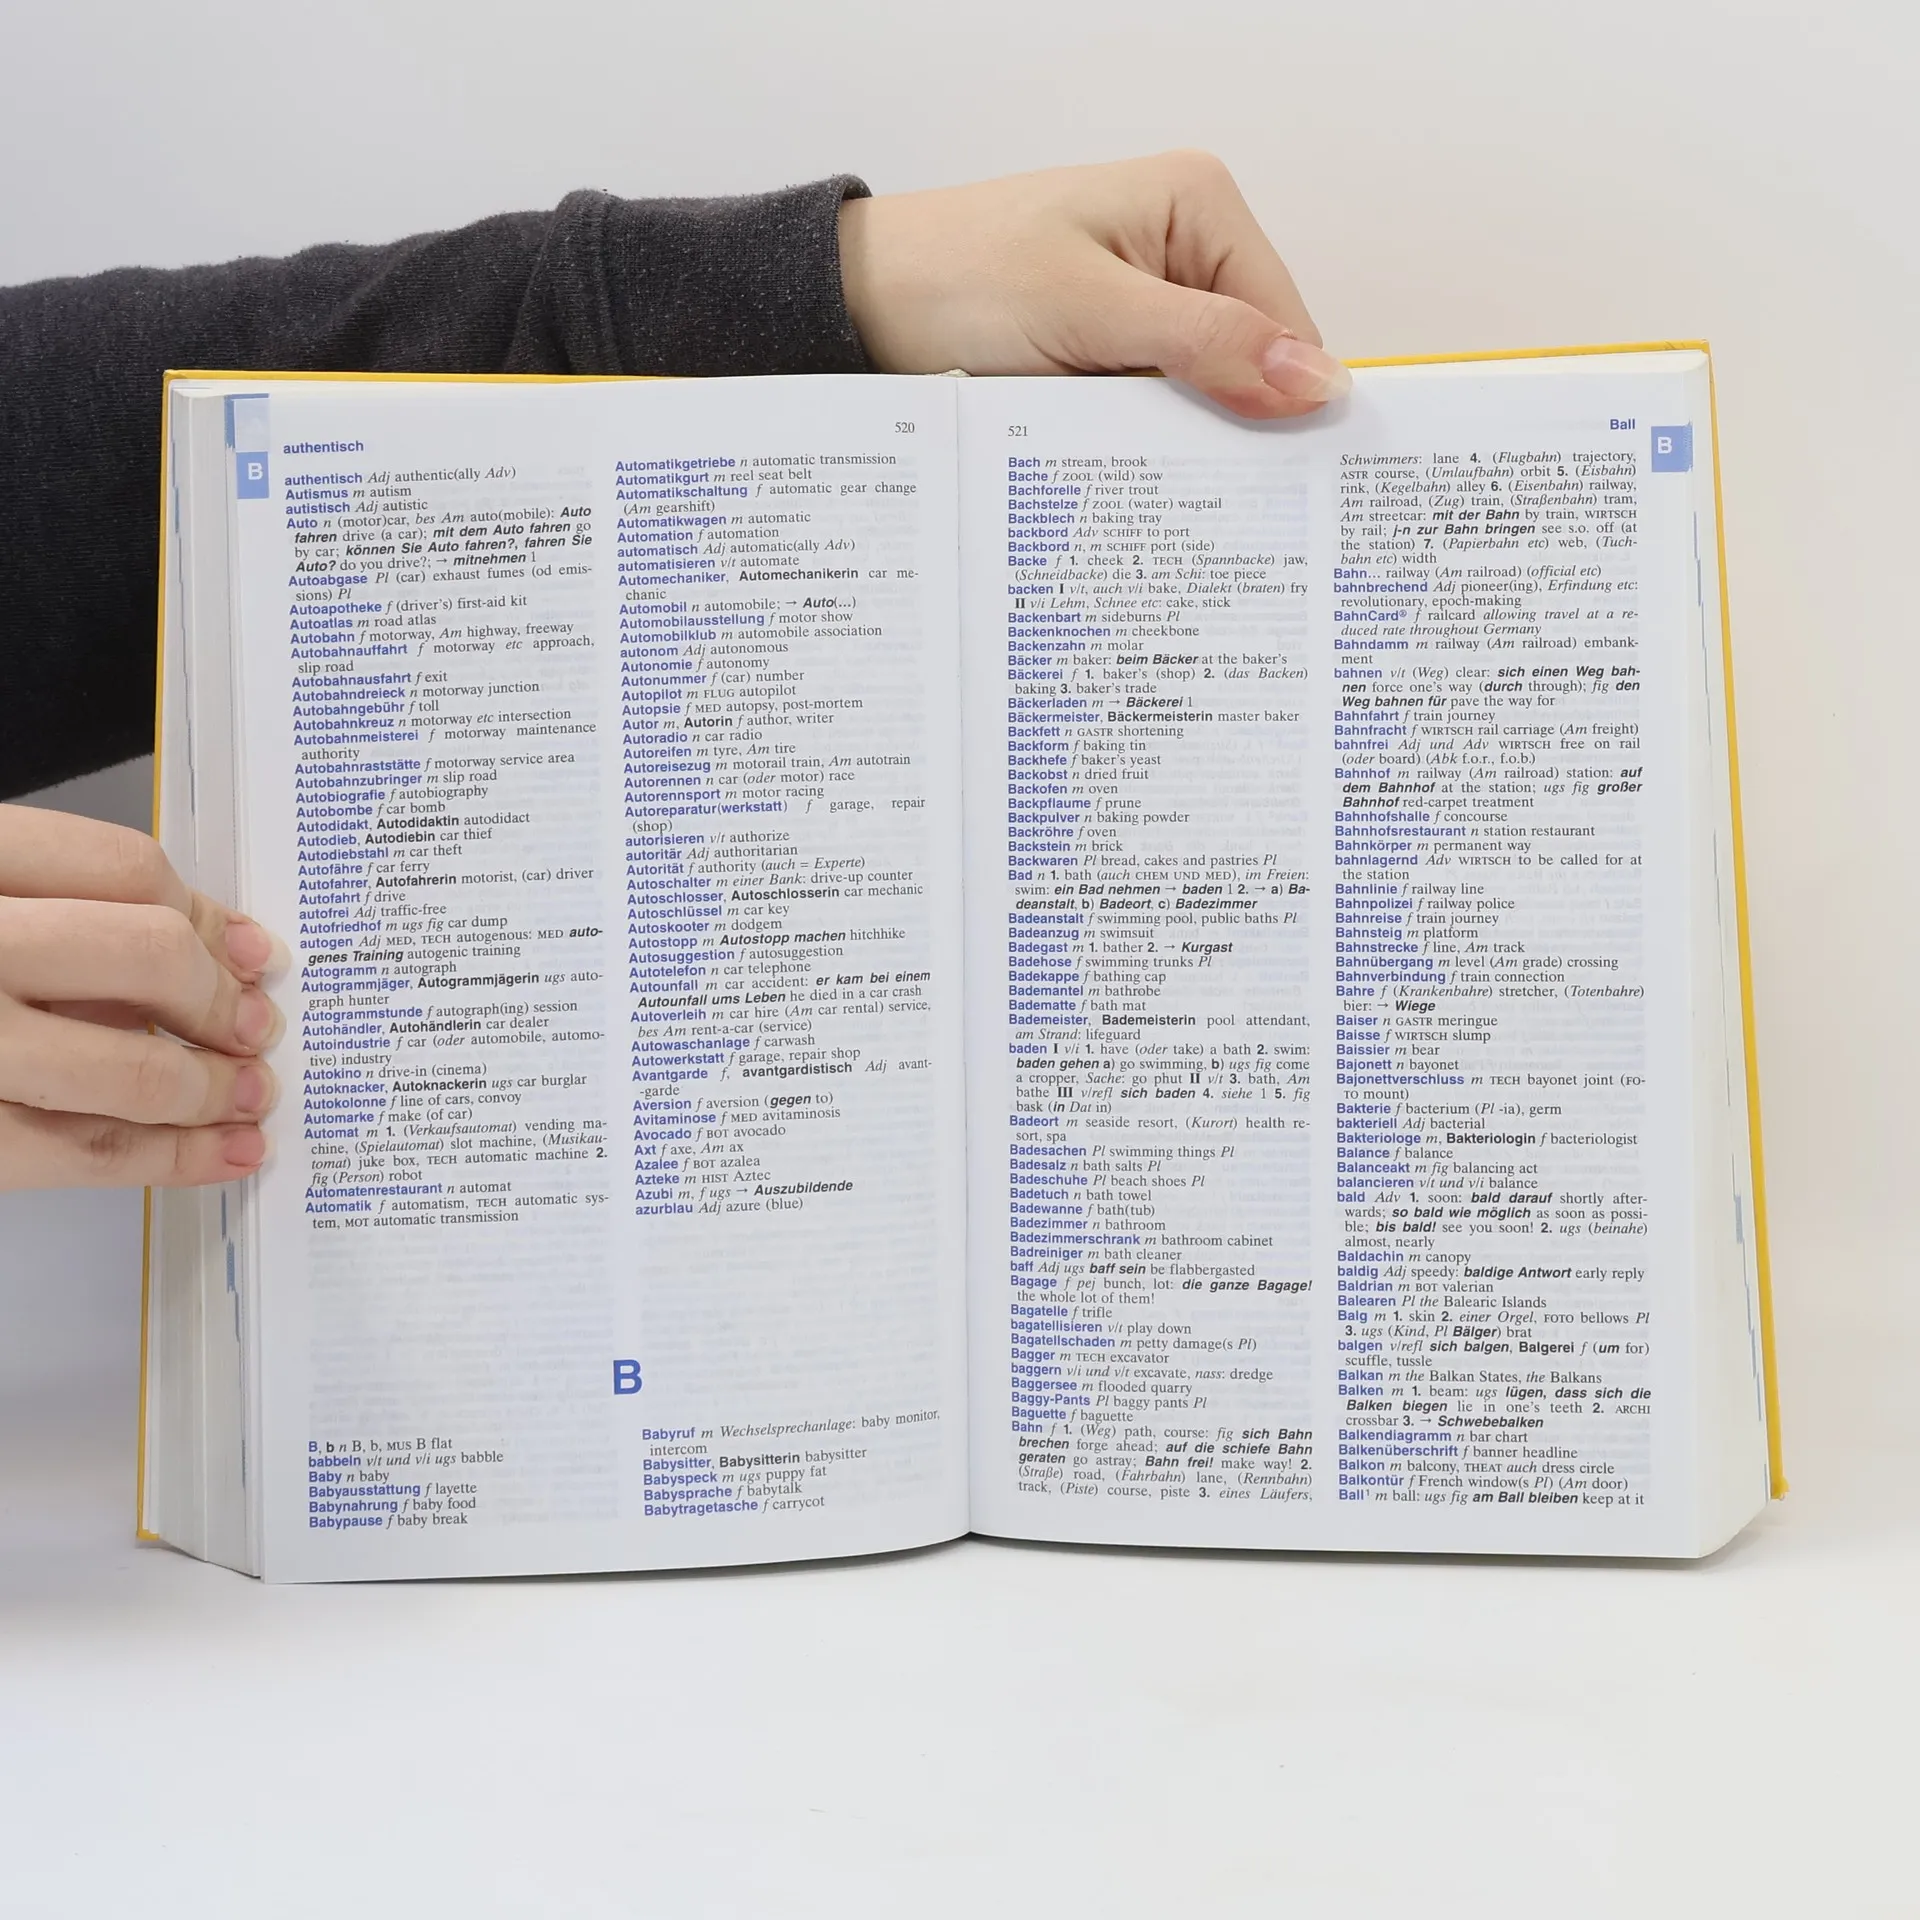 authentisch
520
B
authentisch Adj authentic(ally Adv)
Autismus m autism
autistisch Adj autistic
Auto n (motor)car, bes Am auto(mobile): Auto
fahren drive (a car); mit dem Auto fahren go
by car; können Sie Auto fahren?, fahren Sie
Auto? do you drive?; → mitnehmen 1
Autoabgase Pl (car) exhaust fumes (od emis-
sions) Pl
Autoapotheke f (driver's) first-aid kit
Autoatlas m road atlas
Autobahn f motorway, Am highway, freeway
Autobahnauffahrt f motorway etc approach,
slip road
Autobahnausfahrt f exit
Autobahndreieck n motorway junction
Autobahngebühr f toll
Autobahnkreuz n motorway etc intersection
Autobahnmeisterei f motorway maintenance
authority
Autobahnraststätte f motorway service area
Autobahnzubringer m slip road
Autobiografie f autobiography
Autobombe f car bomb
Autodidakt, Autodidaktin autodidact
Autodieb, Autodiebin car thief
Autodiebstahl m car theft
Autofähre f car ferry
Autofahrer, Autofahrerin motorist, (car) driver
Autofahrt f drive
autofrei Adj traffic-free
Autofriedhof m ugs fig car dump
autogen Adj MED, TECH autogenous: MED auto-
genes Training autogenic training
Autogramm n autograph
Autogrammjäger, Autogrammjägerin ugs auto-
graph hunter
Autogrammstunde f autograph(ing) session
Autohändler, Autohändlerin car dealer
Autoindustrie f car (oder automobile, automo-
tive) industry
Autokino n drive-in (cinema)
Autoknacker, Autoknackerin ugs car burglar
Autokolonne f line of cars, convoy
Automarke f make (of car)
Automat m 1. (Verkaufsautomat) vending ma-
chine, (Spielautomat) slot machine, (Musikau-
tomat) juke box, TECH automatic machine 2.
fig (Person) robot
Automatenrestaurant n automat
Automatik f automatism, TECH automatic sys-
tem, MOT automatic transmission
Automatikgetriebe n automatic transmission
Automatikgurt m reel seat belt
Automatikschaltung f automatic gear change
(Am gearshift)
Automatikwagen m automatic
Automation f automation
automatisch Adj automatic(ally Adv)
automatisieren v/t automate
Automechaniker, Automechanikerin car me-
chanic
Automobil n automobile; → Auto(...)
Automobilausstellung f motor show
Automobilklub m automobile association
autonom Adj autonomous
Autonomie f autonomy
Autonummer f (car) number
Autopilot m FLUG autopilot
Autopsie f MED autopsy, post-mortem
Autor m, Autorin f author, writer
Autoradio n car radio
Autoreifen m tyre, Am tire
Autoreisezug m motorail train, Am autotrain
Autorennen n car (oder motor) race
Autorennsport m motor racing
Autoreparatur(werkstatt) f garage, repair
(shop)
autorisieren v/t authorize
autoritär Adj authoritarian
Autorität f authority (auch = Experte)
Autoschalter m einer Bank: drive-up counter
Autoschlosser, Autoschlosserin car mechanic
Autoschlüssel m car key
Autoskooter m dodgem
Autostopp m Autostopp machen hitchhike
Autosuggestion f autosuggestion
Autotelefon n car telephone
Autounfall m car accident: er kam bei einem
Autounfall ums Leben he died in a car crash
Autoverleih m car hire (Am car rental) service,
bes Am rent-a-car (service)
Autowaschanlage f carwash
Autowerkstatt f garage, repair shop
Avantgarde f, avantgardistisch Adj avant-
-garde
Aversion f aversion (gegen to)
Avitaminose f MED avitaminosis
Avocado f BOT avocado
Axt f axe, Am ax
Azalee f BOT azalea
Azteke m HIST Aztec
Azubi m, f ugs → Auszubildende
azurblau Adj azure (blue)
B
B, b n B, b, MUS B flat
babbeln v/t und v/i ugs babble
Baby n baby
Babyausstattung f layette
Babynahrung f baby food
Babypause f baby break
Babyruf m Wechselsprechanlage: baby monitor,
intercom
Babysitter, Babysitterin babysitter
Babyspeck m ugs puppy fat
Babysprache f babytalk
Babytragetasche f carrycot
521
Ball
B
Bach m stream, brook
Bache f ZOOL (wild) sow
Bachforelle f river trout
Bachstelze f ZOOL (water) wagtail
Backblech n baking tray
backbord Adv SCHIFF to port
Backbord n, m SCHIFF port (side)
Backe f 1. cheek 2. TECH (Spannbacke) jaw,
(Schneidbacke) die 3. am Schi: toe piece
backen I v/t, auch v/i bake, Dialekt (braten) fry
II v/i Lehm, Schnee etc: cake, stick
Backenbart m sideburns Pl
Backenknochen m cheekbone
Backenzahn m molar
Bäcker m baker: beim Bäcker at the baker's
Bäckerei f 1. baker's (shop) 2. (das Backen)
baking 3. baker's trade
Bäckerladen m → Bäckerei 1
Bäckermeister, Bäckermeisterin master baker
Backfett n GASTR shortening
Backform f baking tin
Backhefe f baker's yeast
Backobst n dried fruit
Backofen m oven
Backpflaume f prune
Backpulver n baking powder
Backröhre f oven
Backstein m brick
Backwaren Pl bread, cakes and pastries Pl
Bad n 1. bath (auch CHEM UND MED), im Freien:
swim: ein Bad nehmen → baden 1 2. → a) Ba-
deanstalt, b) Badeort, c) Badezimmer
Badeanstalt f swimming pool, public baths Pl
Badeanzug m swimsuit
Badegast m 1. bather 2. → Kurgast
Badehose f swimming trunks Pl
Badekappe f bathing cap
Bademantel m bathrobe
Bademattte f bath mat
Bademeister, Bademeisterin pool attendant,
am Strand: lifeguard
baden I v/i 1. have (oder take) a bath 2. swim:
baden gehen a) go swimming, b) ugs fig come
a cropper, Sache: go phut II v/t 3. bath, Am
bathe III v/refl sich baden 4. siehe 1 5. fig
bask (in Dat in)
Badeort m seaside resort, (Kurort) health re-
sort, spa
Badesachen Pl swimming things Pl
Badesalz n bath salts Pl
Badeschuhe Pl beach shoes Pl
Badetuch n bath towel
Badewanne f bath(tub)
Badezimmer n bathroom
Badezimmerschrank m bathroom cabinet
Badreiniger m bath cleaner
baff Adj ugs baff sein be flabbergasted
Bagage f pej bunch, lot: die ganze Bagage!
the whole lot of them!
Bagatelle f trifle
bagatellisieren v/t play down
Bagatellschaden m petty damage(s Pl)
Bagger m TECH excavator
baggern v/i und v/t excavate, nass: dredge
Baggersee m flooded quarry
Baggy-Pants Pl baggy pants Pl
Baguette f baguette
Bahn f 1. (Weg) path, course: fig sich Bahn
brechen forge ahead; auf die schiefe Bahn
geraten go astray; Bahn frei! make way! 2.
(Straße) road, (Fahrbahn) lane, (Rennbahn)
track, (Piste) course, piste 3. eines Läufers,
Schwimmers: lane 4. (Flugbahn) trajectory,
ASTR course, (Umlaufbahn) orbit 5. (Eisbahn)
rink, (Kegelbahn) alley 6. (Eisenbahn) railway,
Am railroad, (Zug) train, (Straßenbahn) tram,
Am streetcar: mit der Bahn by train, WIRTSCH
by rail; j-n zur Bahn bringen see s.o. off (at
the station) 7. (Papierbahn etc) web, (Tuch-
bahn etc) width
Bahn... railway (Am railroad) (official etc)
bahnbrechend Adj pioneer(ing), Erfindung etc:
revolutionary, epoch-making
BahnCard® f railcard allowing travel at a re-
duced rate throughout Germany
Bahndamm m railway (Am railroad) embank-
ment
bahnen v/t (Weg) clear: sich einen Weg bah-
nen force one's way (durch through); fig den
Weg bahnen für pave the way for
Bahnfahrt f train journey
Bahnfracht f WIRTSCH rail carriage (Am freight)
bahnfrei Adj und Adv WIRTSCH free on rail
(oder board) (Abk f.o.r., f.o.b.)
Bahnhof m railway (Am railroad) station: auf
dem Bahnhof at the station; ugs fig großer
Bahnhof red-carpet treatment
Bahnhofshalle f concourse
Bahnhofsrestaurant n station restaurant
Bahnkörper m permanent way
bahnlagernd Adv WIRTSCH to be called for at
the station
Bahnlinie f railway line
Bahnpolizei f railway police
Bahnreise f train journey
Bahnsteig m platform
Bahnstrecke f line, Am track
Bahnübergang m level (Am grade) crossing
Bahnverbindung f train connection
Bahre f (Krankenbahre) stretcher, (Totenbahre)
bier: → Wiege
Baiser n GASTR meringue
Baisse f WIRTSCH slump
Baissier m bear
Bajonett n bayonet
Bajonettverschluss m TECH bayonet joint (FO-
TO mount)
Bakterie f bacterium (Pl -ia), germ
bakteriell Adj bacterial
Bakteriologe m, Bakteriologin f bacteriologist
Balance f balance
Balanceakt m fig balancing act
balancieren v/t und v/i balance
bald Adv 1. soon: bald darauf shortly after-
wards; so bald wie möglich as soon as possi-
ble; bis bald! see you soon! 2. ugs (beinahe)
almost, nearly
Baldachin m canopy
baldig Adj speedy: baldige Antwort early reply
Baldrian m BOT valerian
Balearen Pl the Balearic Islands
Balg m 1. skin 2. einer Orgel, FOTO bellows Pl
3. ugs (Kind, Pl Bälger) brat
balgen v/refl sich balgen, Balgerei f (um for)
scuffle, tussle
Balkan m the Balkan States, the Balkans
Balken m 1. beam: ugs lügen, dass sich die
Balken biegen lie in one's teeth 2. ARCHI
crossbar 3. → Schwebebalken
Balkendiagramm n bar chart
Balkenüberschrift f banner headline
Balkon m balcony, THEAT auch dress circle
Balkontür f French window(s Pl) (Am door)
Ball¹ m ball: ugs fig am Ball bleiben keep at it